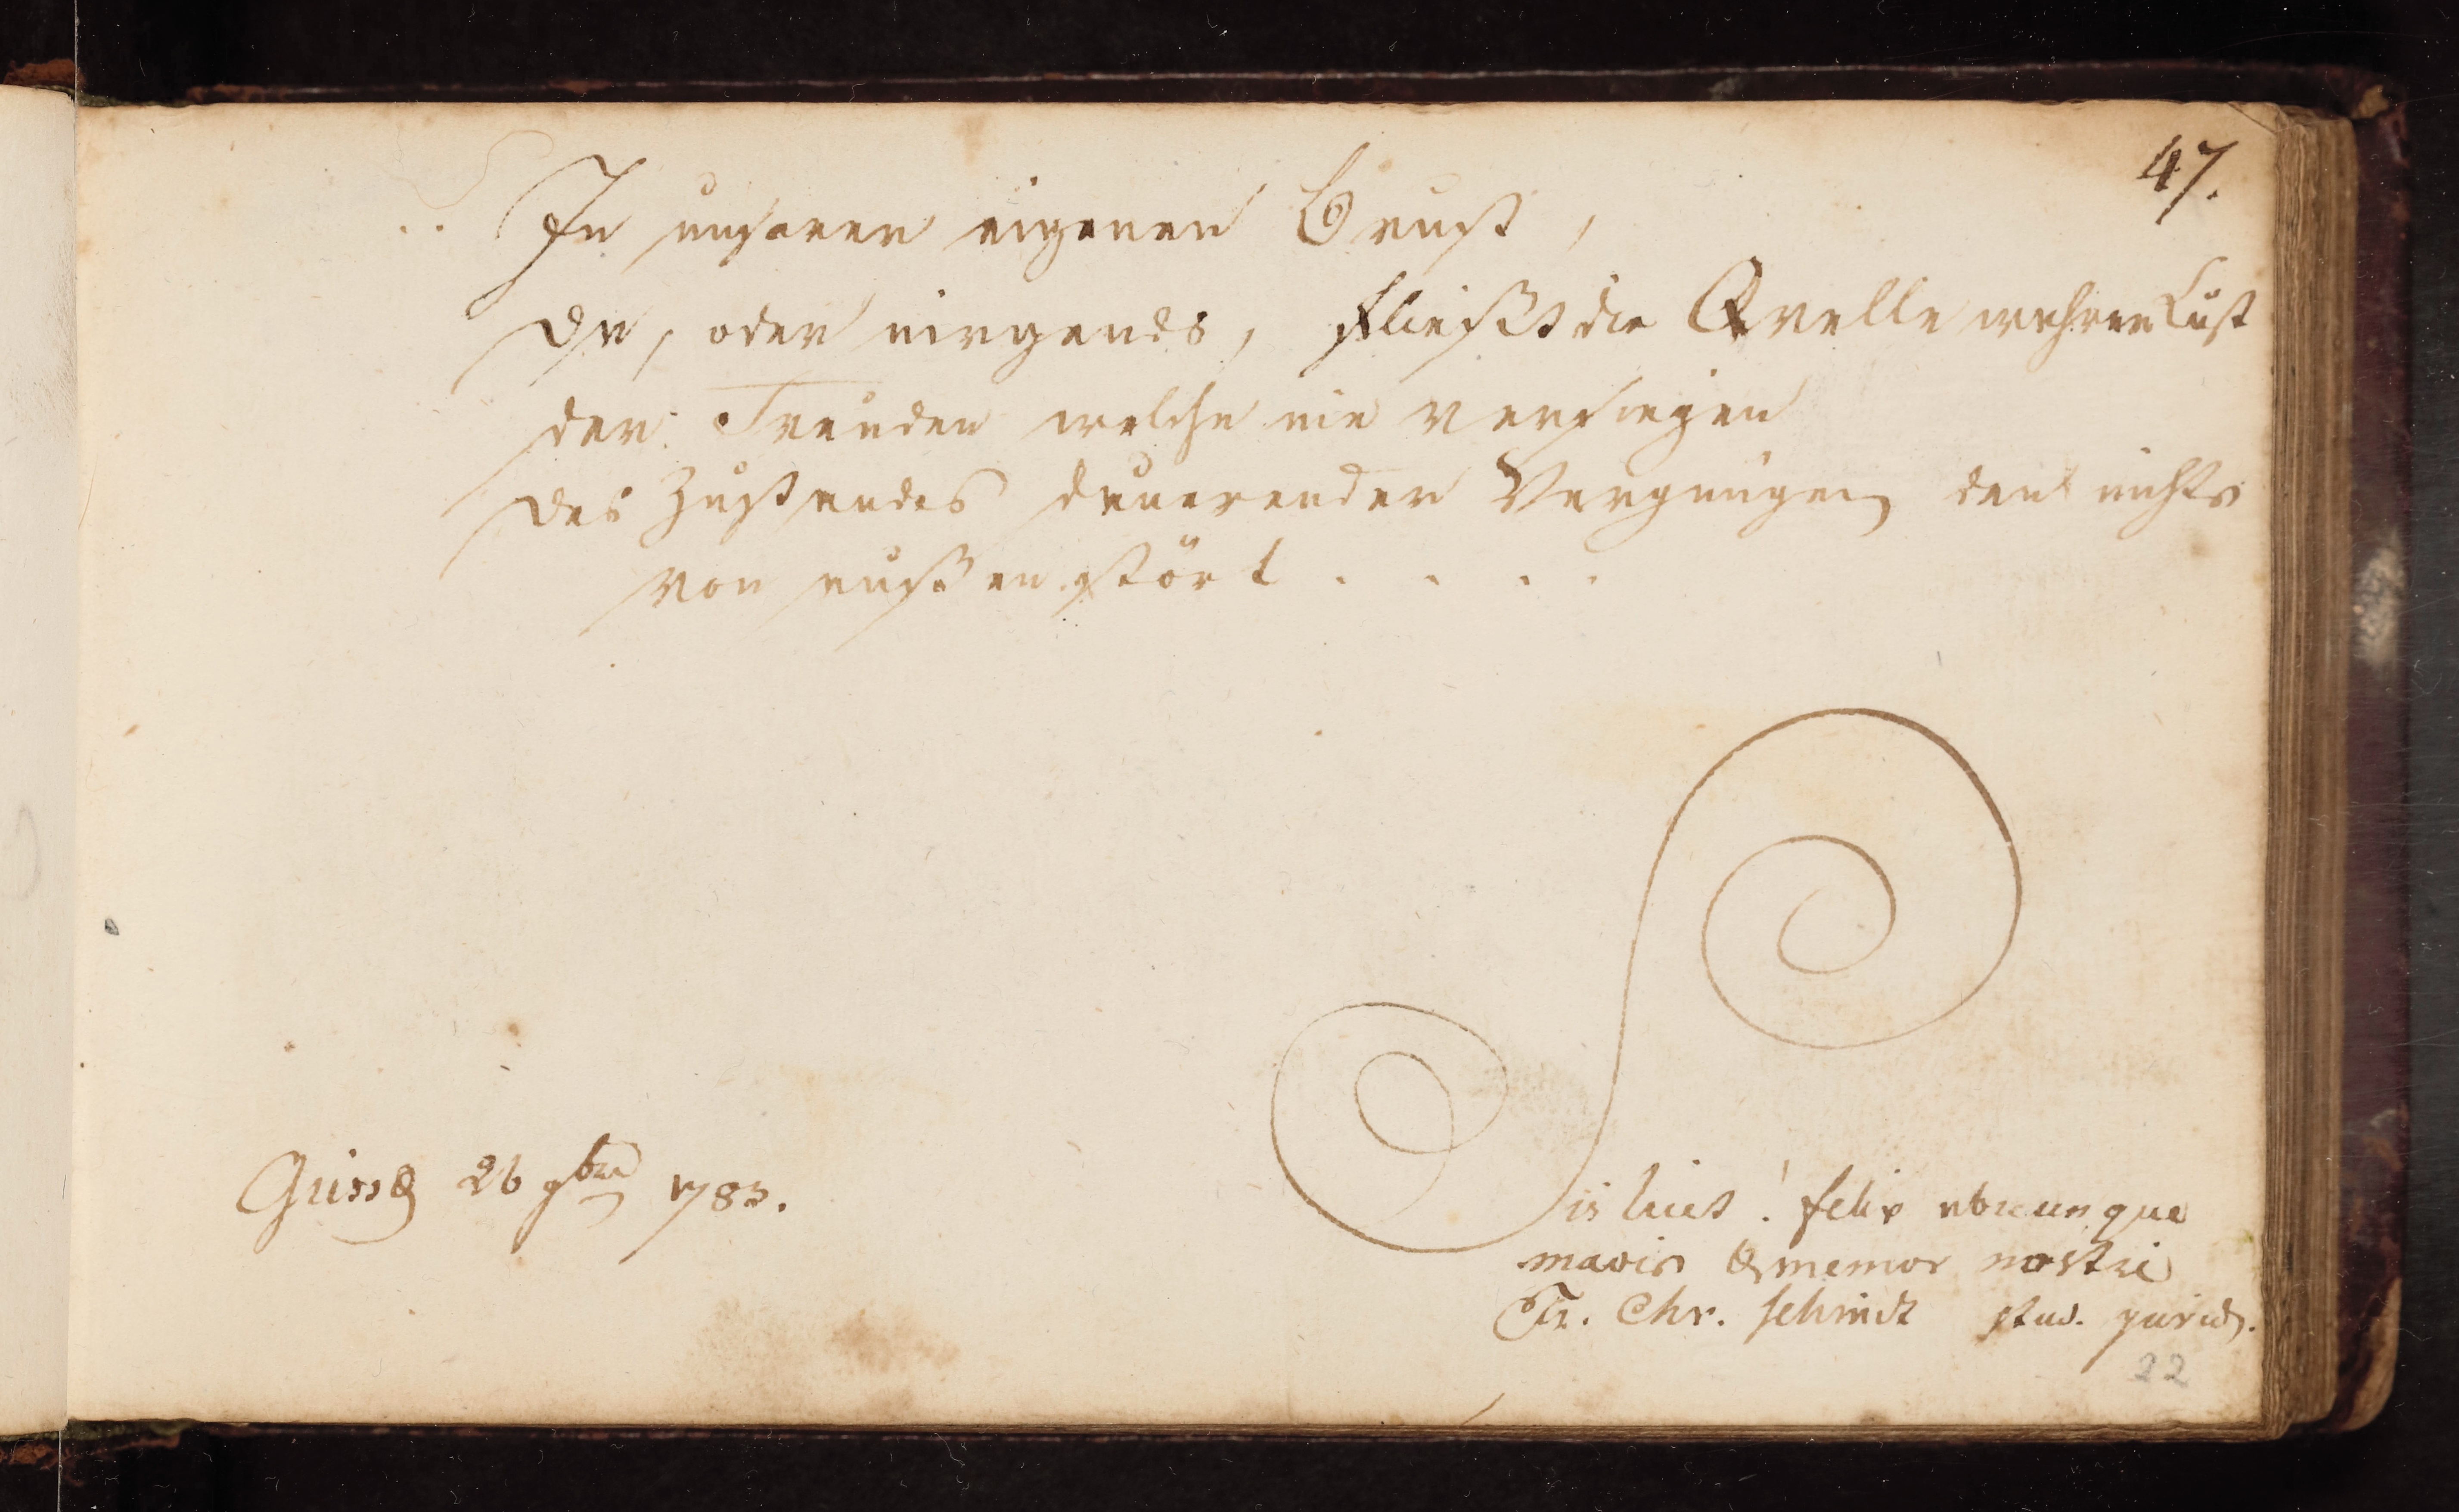 47.
.. In unserer eigenen Brust,
Da, oder nirgends, fließt die Qvelle wahrer Lust
der Freuden welche nie versiegen
Des Zustandes daurender Vergnügen den nichts
von außen stört . . . .
Giess 26 9br 1783.
Sis licet! felix ubicunque
mavis & memor nostri
Fr. Chr. Schmidt stud. jurid.
22